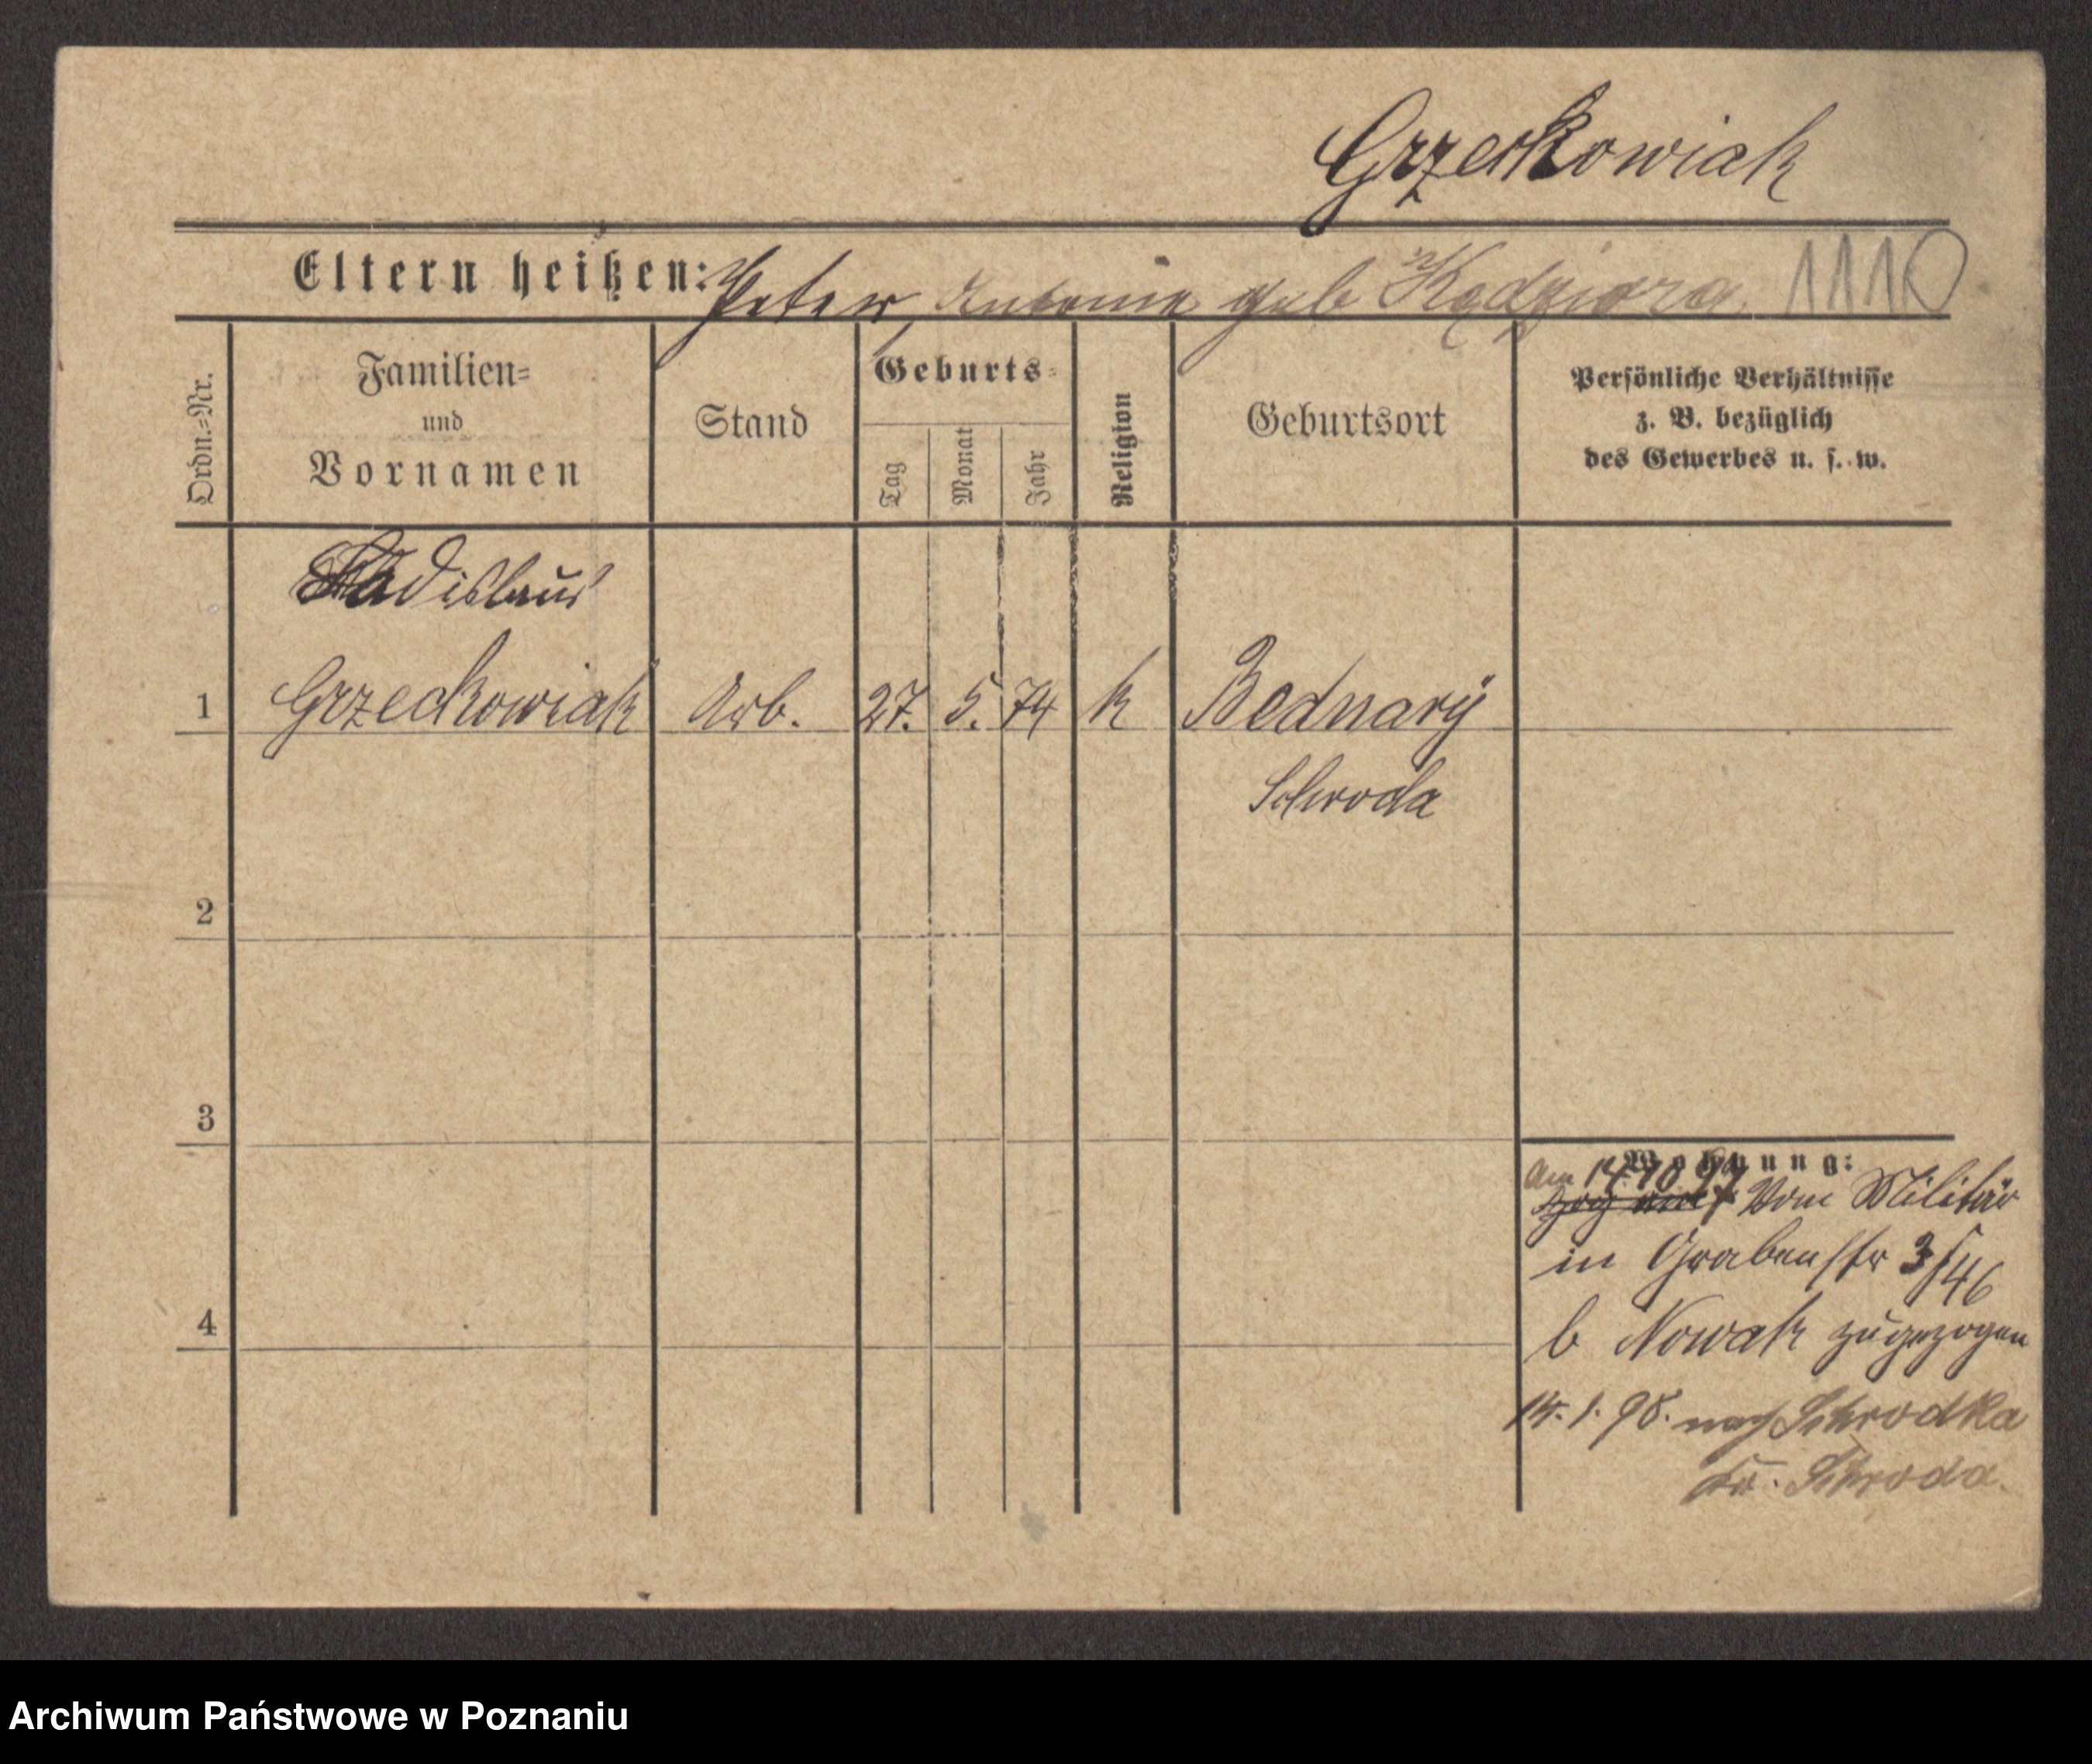 Grzeckowiak
Eltern heißen: Peter, Antonie geb Kędziora 1110
Ordn.-Nr.
Familien-
und
Vornamen
Stand
Geburts-
Tag
Monat
Jahr
Religion
Geburtsort
Persönliche Verhältnisse
z. B. bezüglich
des Gewerbes u. s. w.
Ladislaus
1 Grzeckowiak Arb. 27. 5. 74 k Bednarÿ
Schroda
2
3
4
Wohnung:
Am 14 10 97
Vom Militär
in Grabenstr 3/46
b Nowak zugezogen
14. 1. 98. nach Schrodka
Kr. Schroda.
Archiwum Państwowe w Poznaniu